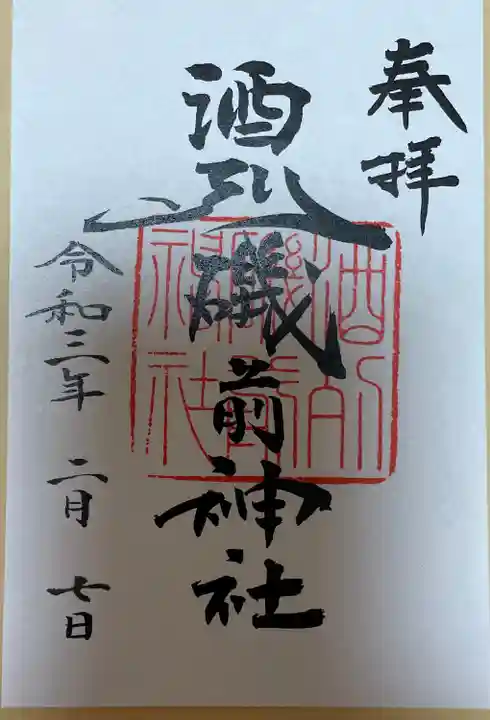 奉拝
酒列磯前神社
酒列磯前神社
令和三年 二月 七日